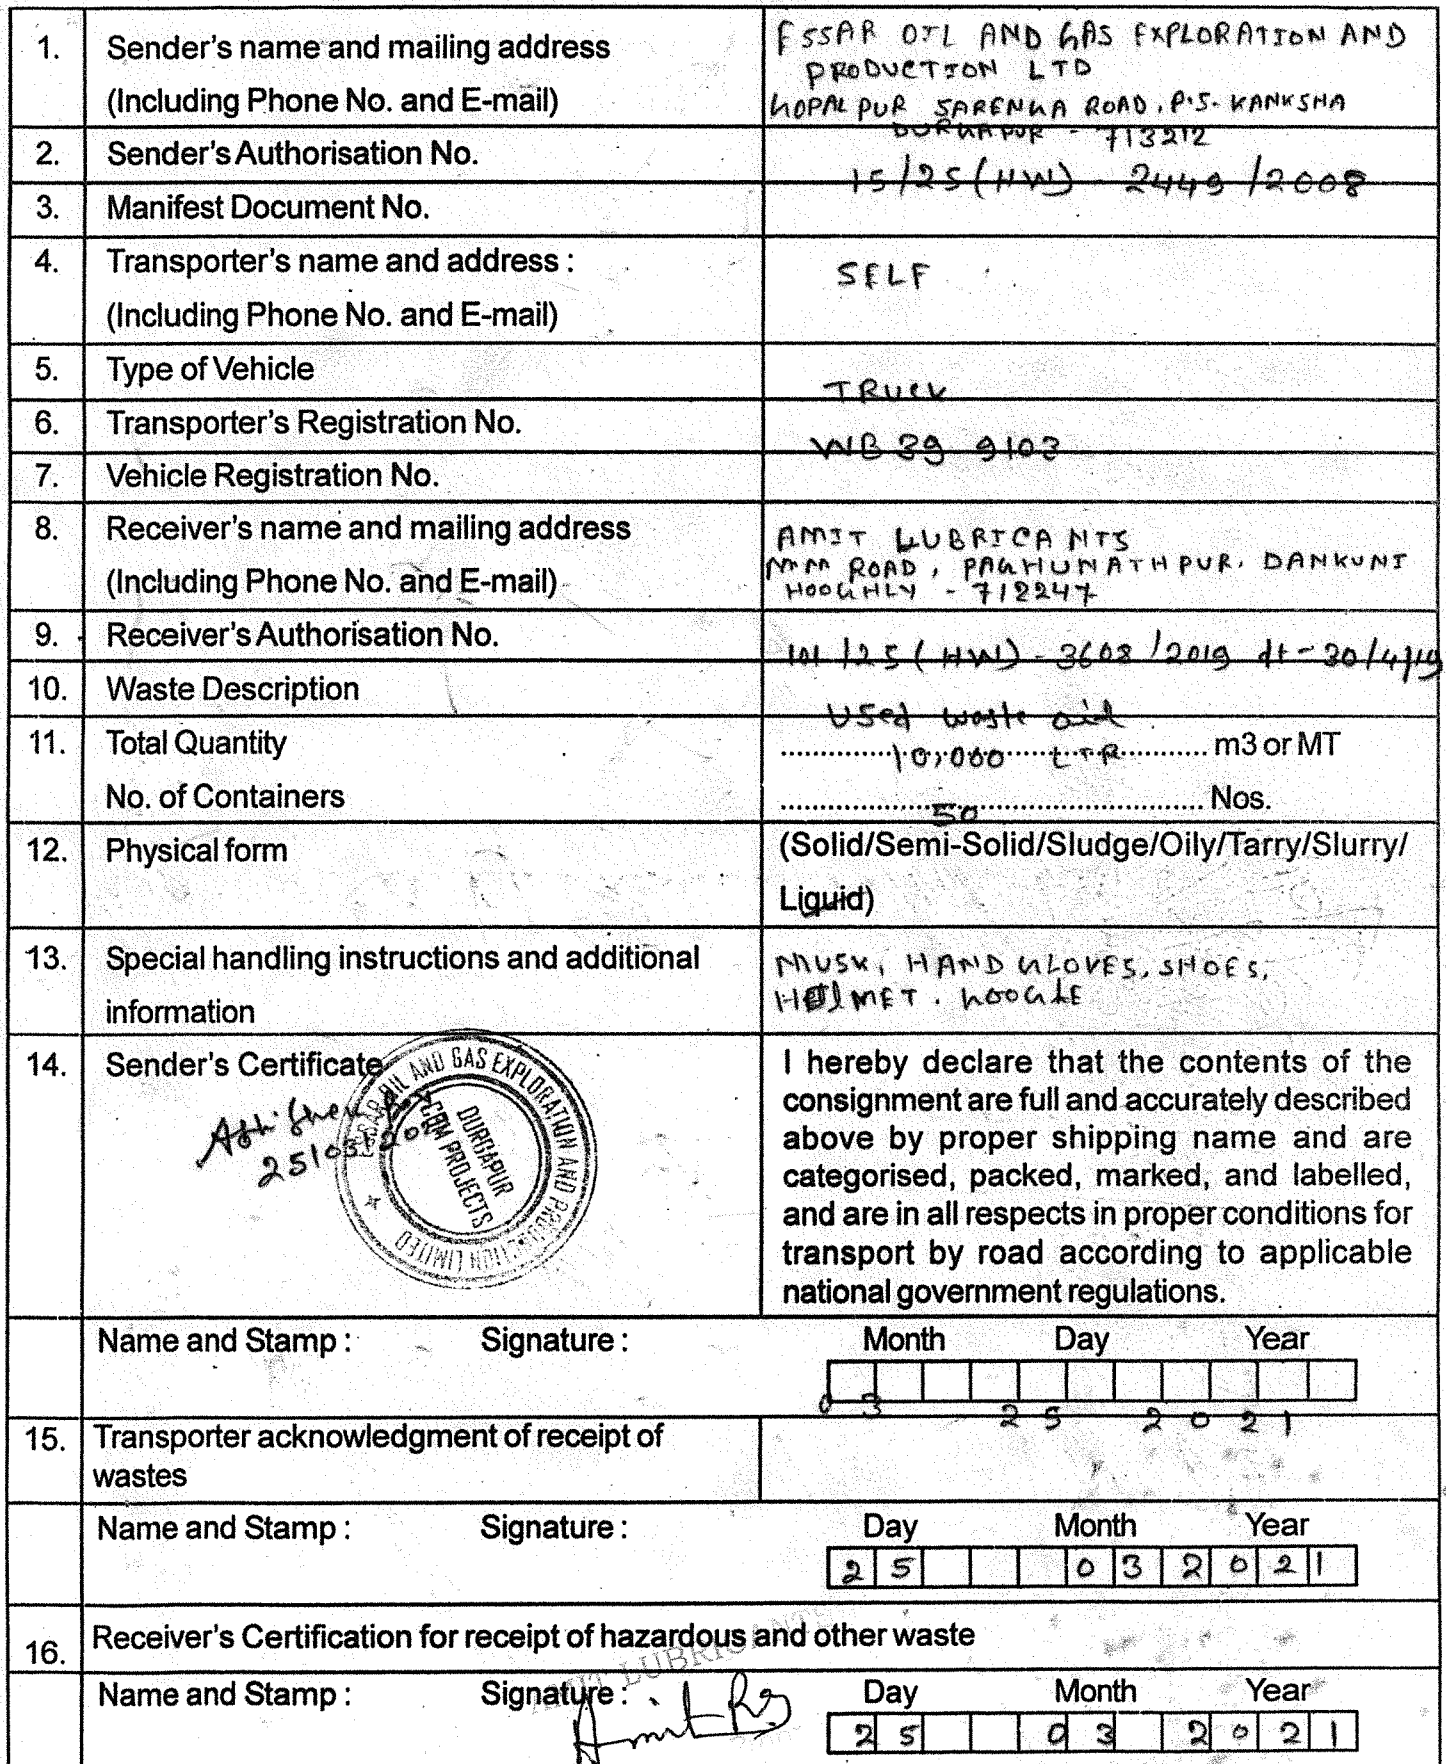 1. Sender's name and mailing address
(Including Phone No. and E-mail)
ESSAR OIL AND GAS EXPLORATION AND
PRODUCTION LTD
GOPALPUR SARENGA ROAD, P.S. KANKSHA
DURGAPUR - 713212
2. Sender's Authorisation No.
15/25(HW) - 2449/2008
3. Manifest Document No.
4. Transporter's name and address :
(Including Phone No. and E-mail)
SELF
5. Type of Vehicle
TRUCK
6. Transporter's Registration No.
WB 39 9103
7. Vehicle Registration No.
8. Receiver's name and mailing address
(Including Phone No. and E-mail)
AMIT LUBRICANTS
MM ROAD, RAGHUNATHPUR, DANKUNI
HOOGHLY - 712247
9. Receiver's Authorisation No.
101/25(HW) - 3608/2019 dt - 30/4/19
10. Waste Description
Used waste oil
11. Total Quantity
10,000 LTR m3 or MT
No. of Containers
50 Nos.
12. Physical form
(Solid/Semi-Solid/Sludge/Oily/Tarry/Slurry/
Liquid)
13. Special handling instructions and additional
information
MUSK, HAND GLOVES, SHOES,
HELMET. GOOGLE
14. Sender's Certificate
25/03/2021
ESSAR OIL AND GAS EXPLORATION AND PRODUCTION LIMITED
DURGAPUR
CBM PROJECTS
I hereby declare that the contents of the
consignment are full and accurately described
above by proper shipping name and are
categorised, packed, marked, and labelled,
and are in all respects in proper conditions for
transport by road according to applicable
national government regulations.
Name and Stamp : Signature : Month Day Year
03 25 2021
15. Transporter acknowledgment of receipt of
wastes
Name and Stamp : Signature : Day Month Year
25 03 2021
16. Receiver's Certification for receipt of hazardous and other waste
AMIT LUBRICANTS
Name and Stamp : Signature : Day Month Year
25 03 2021